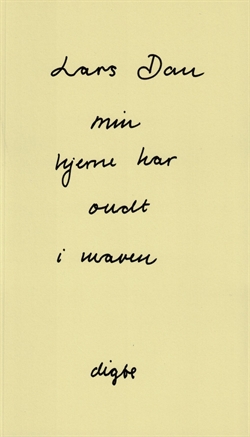 Lars Dan
min
hjerne har
ondt
i maven
digte